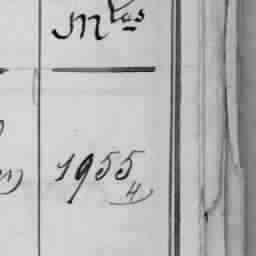 Mlas
1955
4